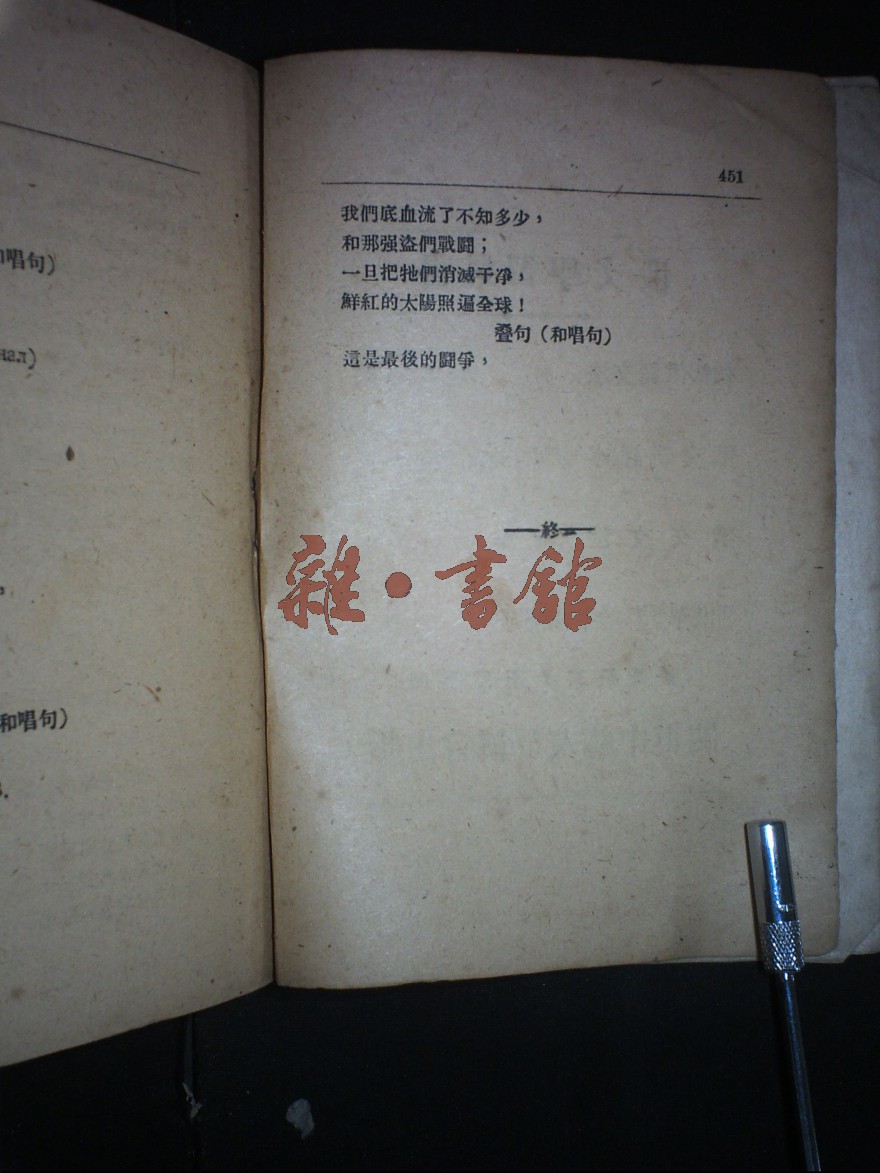 唱句)
нал)
和唱句)
451
我們底血流了不知多少，
和那强盜們戰鬪；
一旦把牠們消滅干凈，
鮮紅的太陽照遍全球！
疊句（和唱句）
這是最後的鬪爭，
—終—
雜·書館